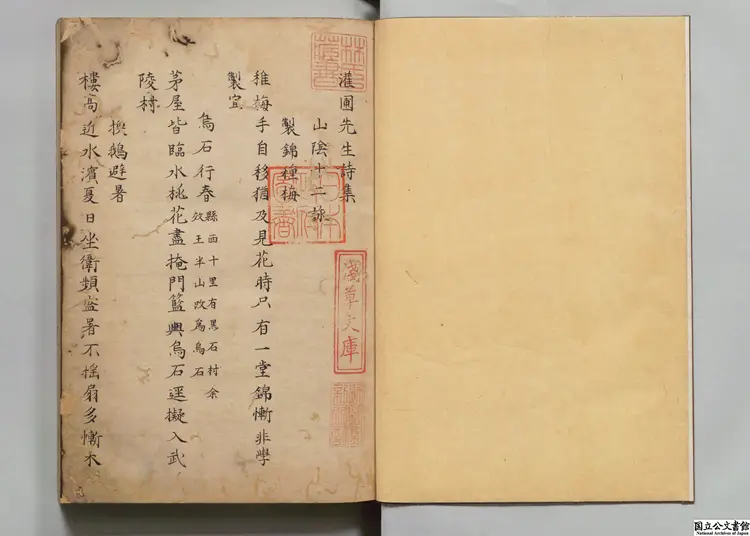 灌圃先生詩集
山陰十二詠
製錦種梅
稚梅手自移猶及見花時只有一堂錦慚非學
製宜
烏石行春
縣西十里有黑石村余
效王半山改為烏石
茅屋皆臨水桃花盡掩門籃輿烏石逕擬入武
陵村
換鵝避暑
樓高近水濱夏日坐衛頻盛暑不揺扇多慚木
林氏藏書
淺草文庫
国立公文書館
National Archives of Japan